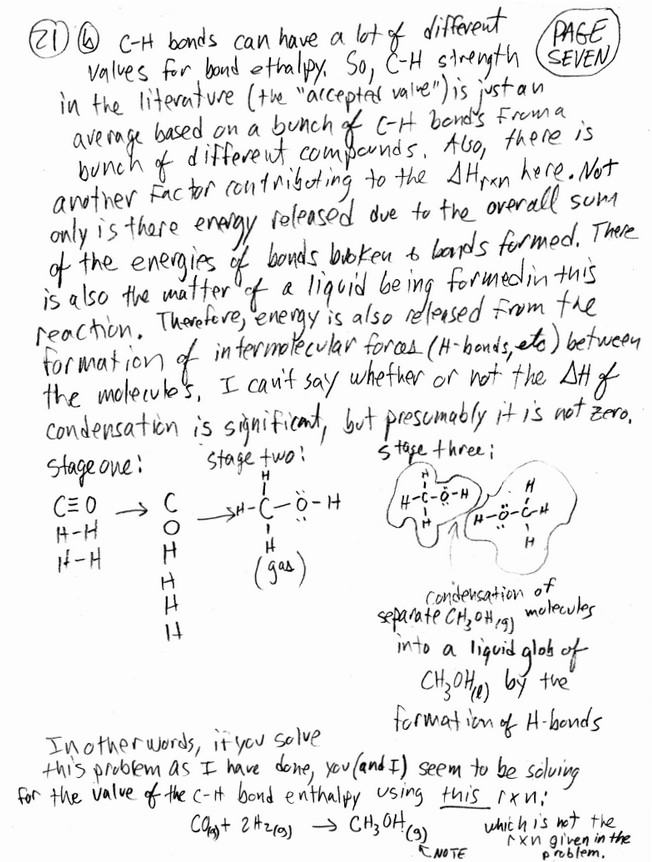 21 b C-H bonds can have a lot of different
PAGE
SEVEN
values for bond ethalpy. So, C-H strength
in the literature (the "accepted value") is just an
average based on a bunch of C-H bonds from a
bunch of different compounds. Also, there is
another factor contributing to the ΔHrxn here. Not
only is there energy released due to the overall sum
of the energies of bonds broken & bonds formed. There
is also the matter of a liquid being formed in this
reaction. Therefore, energy is also released from the
formation of intermolecular forces (H-bonds, etc) between
the molecules. I can't say whether or not the ΔH of
condensation is significant, but presumably it is not zero.
stage one:
C≡O
H-H
H-H
→
C
O
H
H
H
H
stage two:
→
H
H-C-Ö-H
H
(gas)
stage three:
H
H-C-Ö-H
H
H
H-Ö-C-H
H
condensation of
separate CH3OH(g) molecules
into a liquid glob of
CH3OH(l) by the
formation of H-bonds
In other words, if you solve
this problem as I have done, you (and I) seem to be solving
for the value of the C-H bond enthalpy using this rxn:
CO(g) + 2H2(g) → CH3OH(g)
NOTE
which is not the
rxn given in the
problem.